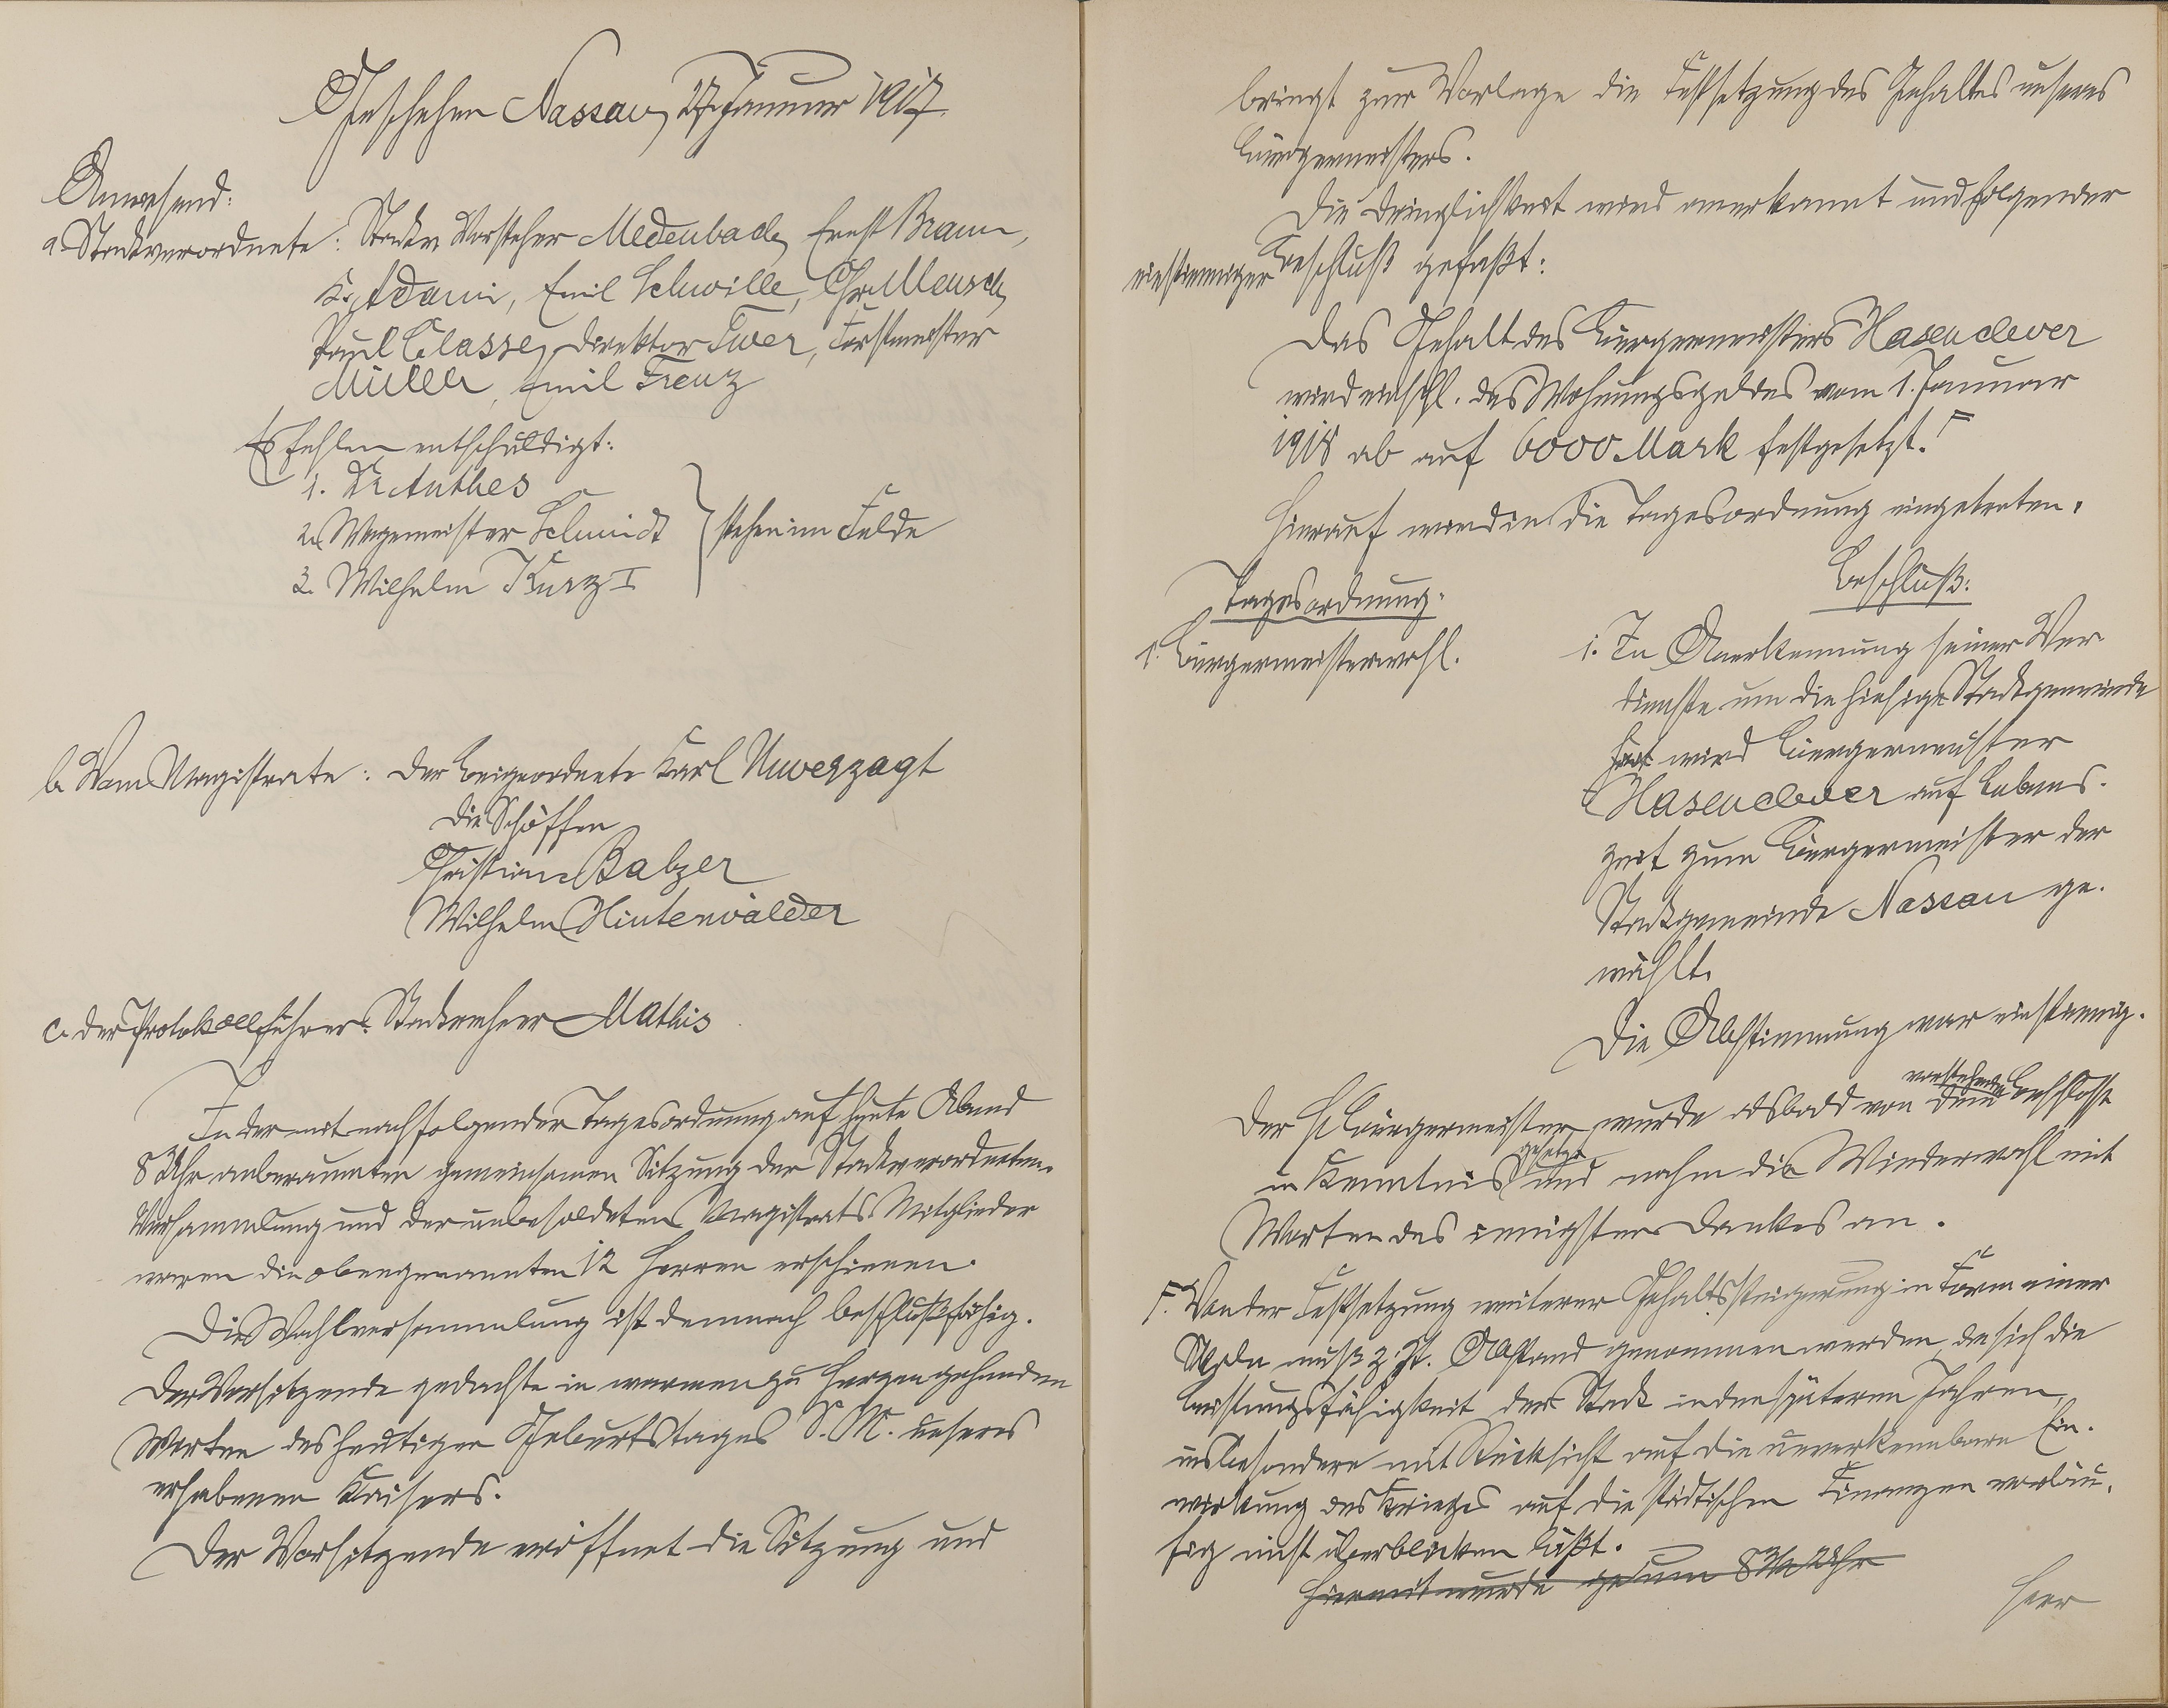 Geschehen Nassau, 27. Januar 1917.
Anwesend:
a. Stadtverordnete: Stadtv. Vorsteher Medenbach, Ernst Braun,
K. Adami, Emil Schwille, Chr. Mensch,
Paul Classe, Direktor Twer, Forstmeister
Müller, Emil Trenz
Es fehlen entschuldigt:
1. Dr. Anthes
2. Wegemeister Schmidt
3. Wilhelm Kurz I
stehen im Felde
b. Vom Magistrate: der Beigeordnete Karl Unverzagt
Die Schöffen
Christian Balzer
Wilhelm Hinterwälder
c. der Protokollführer: Stadtrechner Mathis
In der mit nachfolgender Tagesordnung auf heute Abend
8 Uhr anberaumten gemeinsamen Sitzung der Stadtverordneten-
Versammlung und der unbesoldeten Magistrats-Mitglieder
waren die obengenannten 12 Herren erschienen.
Die Wahlversammlung ist demnach beschlußfähig.
Der Vorsitzende gedachte in warmen zu Herzen gehenden
Worten des heutigen Geburtstages S. M. unseres
erhabenen Kaisers.
Der Vorsitzende eröffnet die Sitzung und
bringt zur Vorlage die Festsetzung des Gehaltes unseres
Bürgermeisters.
Die Dringlichkeit wird anerkannt und folgender
einstimmiger Beschluß gefaßt:
Das Gehalt des Bürgermeisters Hasenclever
wird einschl. des Wohnungsgeldes vom 1. Januar
1918 ab auf 6000 Mark festgesetzt. F
Hierauf wird in die Tagesordnung eingetreten.
Tagesordnung.
Beschluß:
1. Bürgermeisterwahl.
1. In Anerkennung seiner Ver
dienste um die hiesige Stadtgemeinde
hat wird Bürgermeister
Hasenclever auf Lebens-
zeit zum Bürgermeister der
Stadtgemeinde Nassau ge-
wählt.
Die Abstimmung war einstimmig.
vorstehendem
Der H. Bürgermeister wurde alsbald von dem Beschlusse
gesetzt
in Kenntnis und nahm die Wiederwahl mit
Worten des innigsten Dankes an.
F. Von der Festsetzung weiterer Gehaltssteigerung in Form einer
Skala muß z. Zt. Abstand genommen werden, da sich die
Leistungsfähigkeit der Stadt in den späteren Jahren,
insbesondere mit Rücksicht auf die unverkennbare Ein-
wirkung des Krieges auf die städtischen Finanzen vorläu-
fig nicht überblicken läßt.
Hiermit wurde um 8 3/4 Uhr
Herr